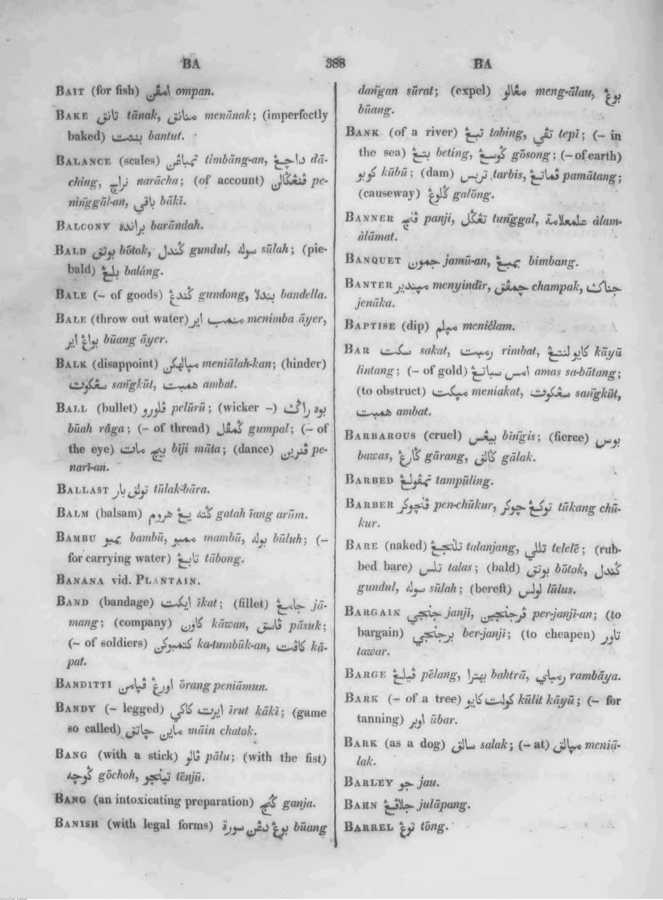 BA 388 BA
BAIT (for fish) امڤن ompan.
BAKE تانق tānak, منانق menānak; (imperfectly
baked) بنتت bantut.
BALANCE (scales) تمباڠن timbāng-an, داچڠ dā-
ching, نراچ narācha; (of account) ڤڠݢالن pe-
ninggāl-an, باقي bāki.
BALCONY برانده barāndah.
BALD بوتق bōtak, ݢندل gundul, سوله sūlah; (pie-
bald) بلڠ baláng.
BALE (— of goods) ݢندڠ gundong, بندلا bandella.
BALE (throw out water) منمب اير menimba āyer,
بواڠ اير būang āyer.
BALK (disappoint) مپالهكن meniālah-kan; (hinder)
سڠكوت sangkūt, همبت ambat.
BALL (bullet) ڤلورو pelūrū; (wicker —) بوه راݢ
būah rāga; (— of thread) ݢمڤل gumpal; (— of
the eye) بيج مات biji māta; (dance) ڤنرين pe-
narī-an.
BALLAST تولق بار tūlak-bāra.
BALM (balsam) ݢته يڠ هروم gatah īang arūm.
BAMBU بمبو bambū, ممبو mambū, بوله būluh; (—
for carrying water) تابڠ tābong.
BANANA vid. PLANTAIN.
BAND (bandage) ايكت īkat; (fillet) جامڠ jā-
mang; (company) كاون kāwan, ڤاسق pāsuk;
(— of soldiers) كتمبوكن ka-tumbūk-an, كاڤت kā-
pat.
BANDITTI اورڠ ڤپامن ōrang peniāmun.
BANDY (— legged) ايرت كاكي īrut kāki; (game
so called) ماين چاتق māin chatak.
BANG (with a stick) ڤالو pālu; (with the fist)
ݢوچه gōchoh, تينجو tēnjū.
BANG (an intoxicating preparation) ݢنج ganja.
BANISH (with legal forms) بوڠ دڠن سورة būang
dangan sūrat; (expel) مڠالو meng-ālau, بوڠ
būang.
BANK (of a river) تبڠ tabing, تڤي tepi; (— in
the sea) بتڠ beting, ݢوسڠ gōsong; (— of earth)
كوبو kūbū; (dam) تربس tarbis, ڤماتڠ pamātang;
(causeway) ݢلوڠ galōng.
BANNER ڤنجي panji, تڠݢل tunggal, علمعلامة álam-
álāmat.
BANQUET جمون jamū-an, بمبڠ bimbang.
BANTER مپندير menyindīr, چمڤق champak, جناك
jenāka.
BAPTISE (dip) مپلم menièlam.
BAR سكت sakat, رمبت rimbat, كايو لنتڠ kāyū
lintang; (— of gold) امس سباتڠ amas sa-bātang;
(to obstruct) مپكت meniakat, سڠكوت sangkūt,
همبت ambat.
BARBAROUS (cruel) بيڠس bīngis; (fierce) بوس
bawas, ݢارڠ gārang, ݢالق gālak.
BARBED تمڤولڠ tampūling.
BARBER ڤنچوكر pen-chūkur, توكڠ چوكر tūkang chū-
kur.
BARE (naked) تلنجڠ talanjang, تللي telelē; (rub-
bed bare) تلس talas; (bald) بوتق bōtak, ݢندل
gundul, سوله sūlah; (bereft) لولس lūlus.
BARGAIN جنجي janji, ڤرجنجين per-janjī-an; (to
bargain) برجنجي ber-janji; (to cheapen) تاور
tawar.
BARGE ڤيلڠ pēlang, بهترا bahtrā, رمباي rambāya.
BARK (— of a tree) كولت كايو kūlit kāyū; (— for
tanning) اوبر ūbar.
BARK (as a dog) سالق salak; (— at) مپالق meniā-
lak.
BARLEY جو jau.
BARN جلاڤڠ julāpang.
BARREL توڠ tōng.